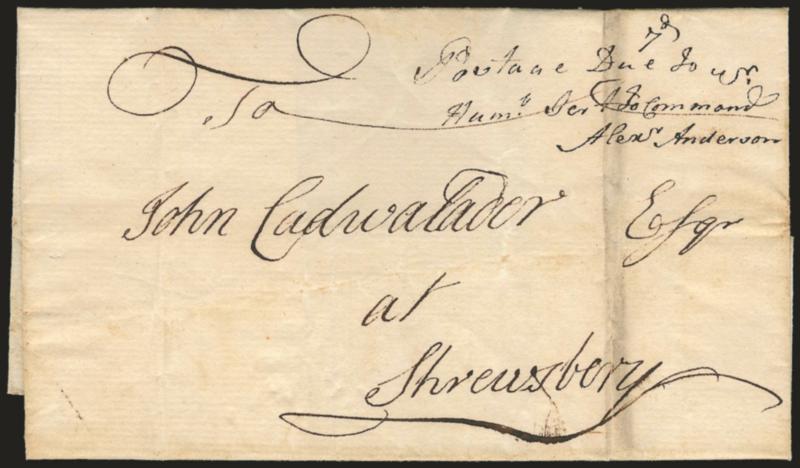 7d
Postage Due to yr.
Humb. Servt to Command
Alexr Anderson
To
John Cadwalador Esqr
at
Shrewsbery